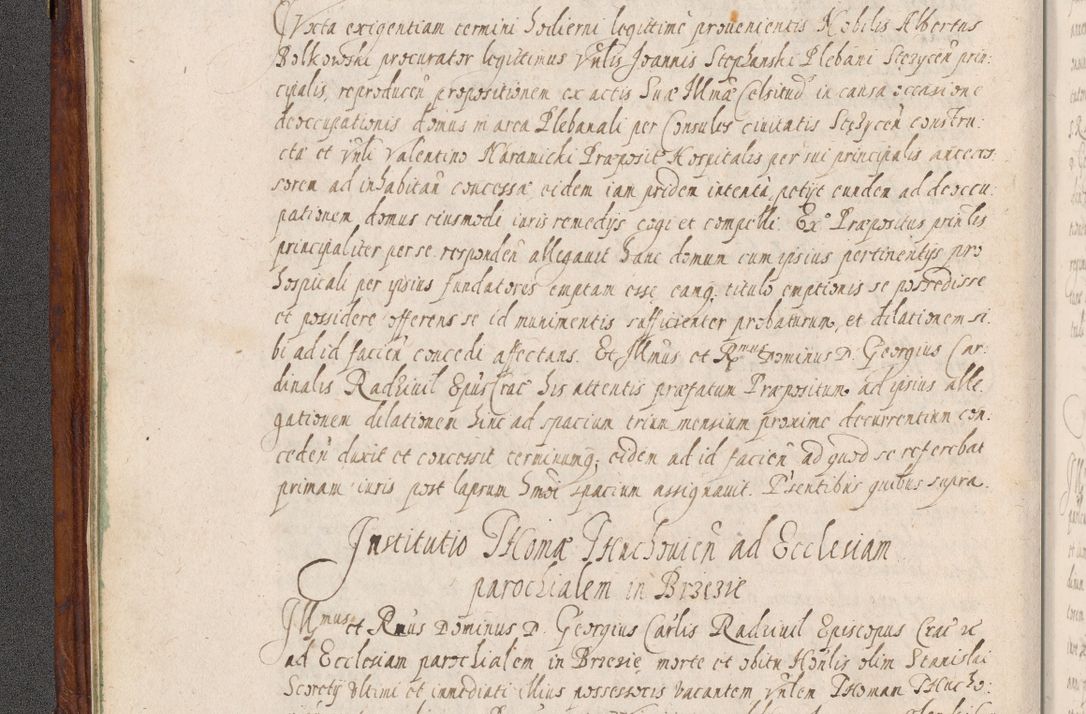 Iuxta exigentiam termini hodierni legittime prouenientis Nobilis Albertus
Bolkowski procurator legitimus Vnlis Joannis Stephanski Plebani Stezyceñ prin:
cipalis, reproduceñ propositionem ex actis Suæ Illmæ Celsitud in causa occasione
deoccupationis domus in area Plebanali per Consules ciuitatis Stezyceñ constru:
ctæ et Vnli Valentino Naramicki Præposit Hospitalis per sui principalis anteces:
sorem ad inhabitañ concessæ eidem iam pridem intentâ, petijt eundem ad deoccu:
pationem domus eiusmodi iuris remedijs cogi et compelli. Ex° Præpositus princlis
principaliter per se respondeñ allegauit hanc domum cum ipsius pertinentijs pro
hospitali per ipsius fundatores emptam esse eamq; titulo emptionis se possedisse
et possidere offerens se id munimentis sufficienter probaturum, et dilationem si
bi ad id facieñ concedi affectans. Et Illmus et Rmus Dominus D. Georgius Car:
dinalis Radziuil Epus Crac his attentis præfatum Præpositum ad ipsius alle
gationem dilationem hinc ad spacium trium mensium proxime decurrentium con:
cedeñ duxit et concessit terminumq; eidem ad id facieñ ad quod se referebat
primam iuris post lapsum hmõi spacium assignauit. Pñsentibus quibus supra.
Institutio Thomæ Thuchouieñ ad Ecclesiam
parochialem in Brzezie
Illmus et Rmus Dominus D. Georgius Carlis Radziuil Episcopus Crac &c
ad Ecclesiam parochialem in Brzezie morte et obitu Honlis olim Stanislai
Vltimi et immediati illius possessoris vacantem Vnlem Thomam Thucho: